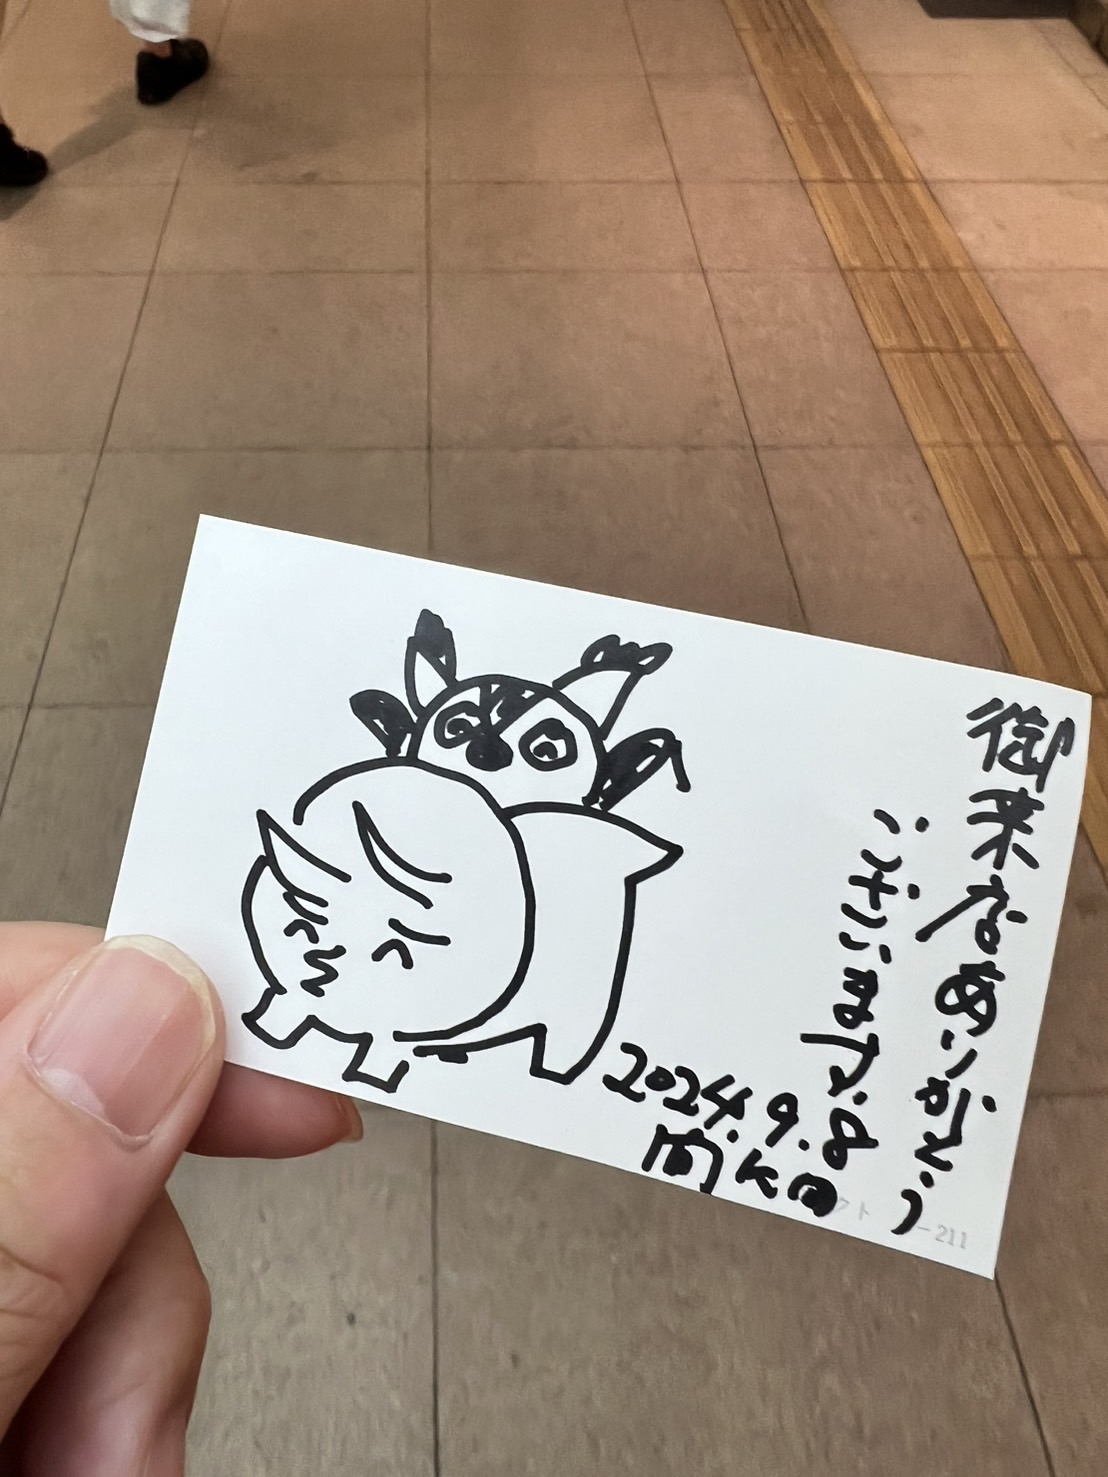 御来店ありがとう
ございます。
2024.9.8
ト
-211